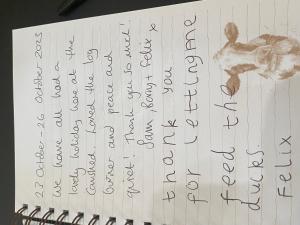 23 October - 26 October 2023
We have all had a
lovely holiday here at the
Cowshed. Loved the log
burner and peace and
quiet! Thank you so much!
Sam, Romy + Felix x
thank you
for letting me
feed the
ducks
Felix